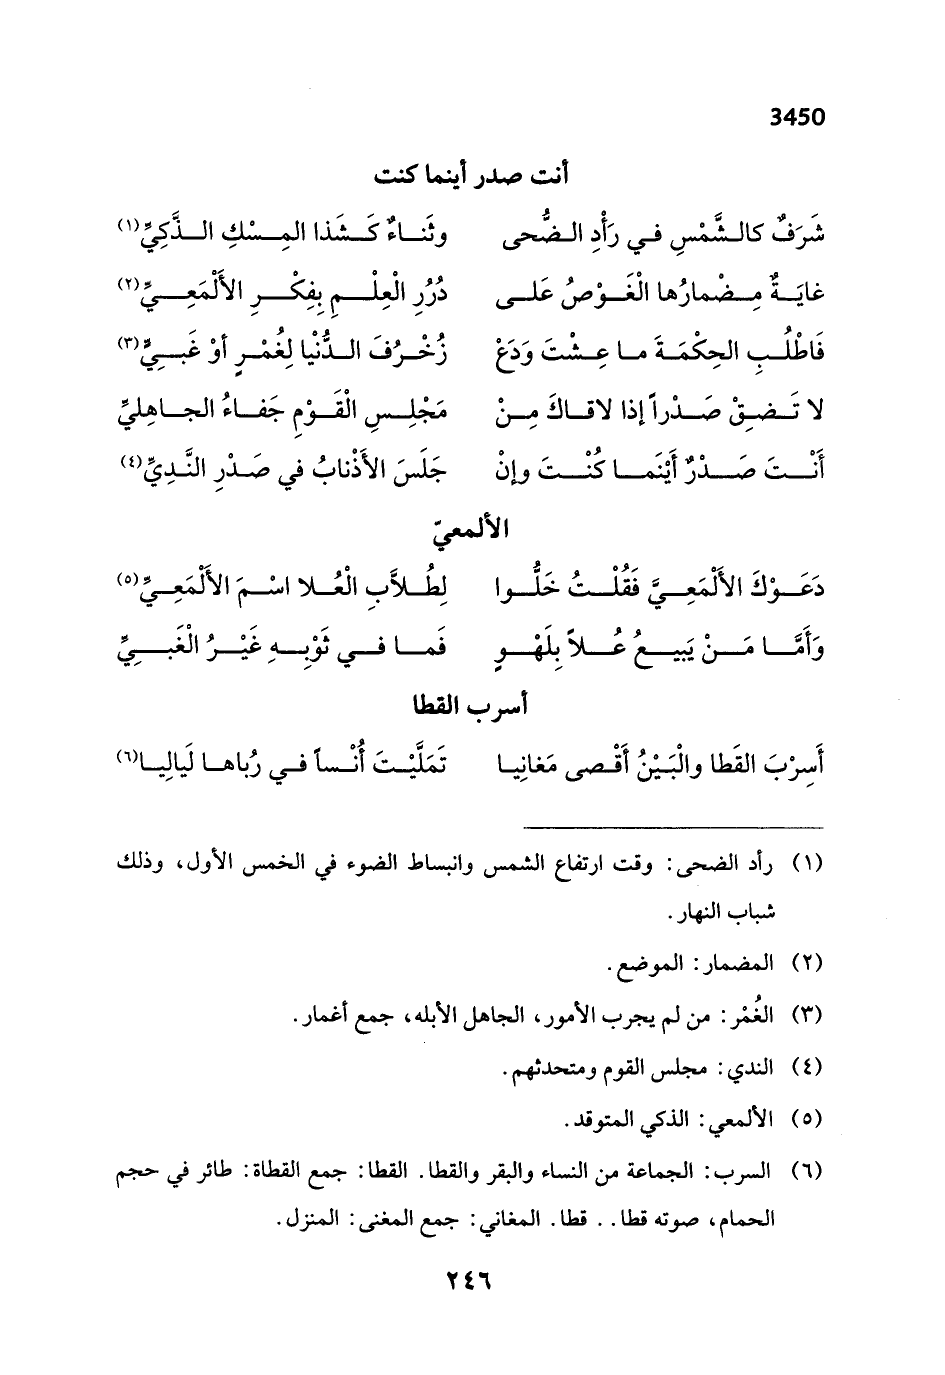 3450
أنت صدر أينما كنت
شَرَفٌ كالشَّمْسِ في رَأْدِ الضُّحى وثَناءٌ كَشَذا المِسْكِ الذَّكِيِّ(١)
غايَةٌ مِضْمارُها الغَوْصُ عَلى دُرُرِ الْعِلْمِ بِفِكْرِ الأَلْمَعِيِّ(٢)
فَاطْلُبِ الحِكْمَةَ ما عِشْتَ وَدَعْ زُخْرُفَ الدُّنْيا لِغُمْرٍ أوْ غَبِيِّ(٣)
لا تَضِقْ صَدْراً إذا لاقاكَ مِنْ مَجْلِسِ الْقَوْمِ جَفاءُ الجاهِليِّ
أَنْتَ صَدْرٌ أَيْنَما كُنْتَ وإنْ جَلَسَ الأَذْنابُ في صَدْرِ النَّدِيِّ(٤)
الألمعيّ
دَعَوْكَ الأَلْمَعِيَّ فَقُلْتُ خَلُّوا لِطُلاَّبِ الْعُلا اسْمَ الأَلْمَعِيِّ(٥)
وَأَمَّا مَنْ يَبيعُ عُلاً بِلَهْوٍ فَما في ثَوْبِهِ غَيْرُ الْغَبِيِّ
أسرب القطا
أَسِرْبَ القَطا والْبَيْنُ أَقْصى مَغانِيا تَمَلَّيْتَ أُنْساً في رُباها لَيالِيا(٦)
(١) رأد الضحى: وقت ارتفاع الشمس وانبساط الضوء في الخمس الأول، وذلك
شباب النهار.
(٢) المضمار: الموضع.
(٣) الغُمْر: من لم يجرب الأمور، الجاهل الأبله، جمع أغمار.
(٤) الندي: مجلس القوم ومتحدثهم.
(٥) الألمعي: الذكي المتوقد.
(٦) السرب: الجماعة من النساء والبقر والقطا. القطا: جمع القطاة: طائر في حجم
الحمام، صوته قطا.. قطا. المغاني: جمع المغنى: المنزل.
٢٤٦